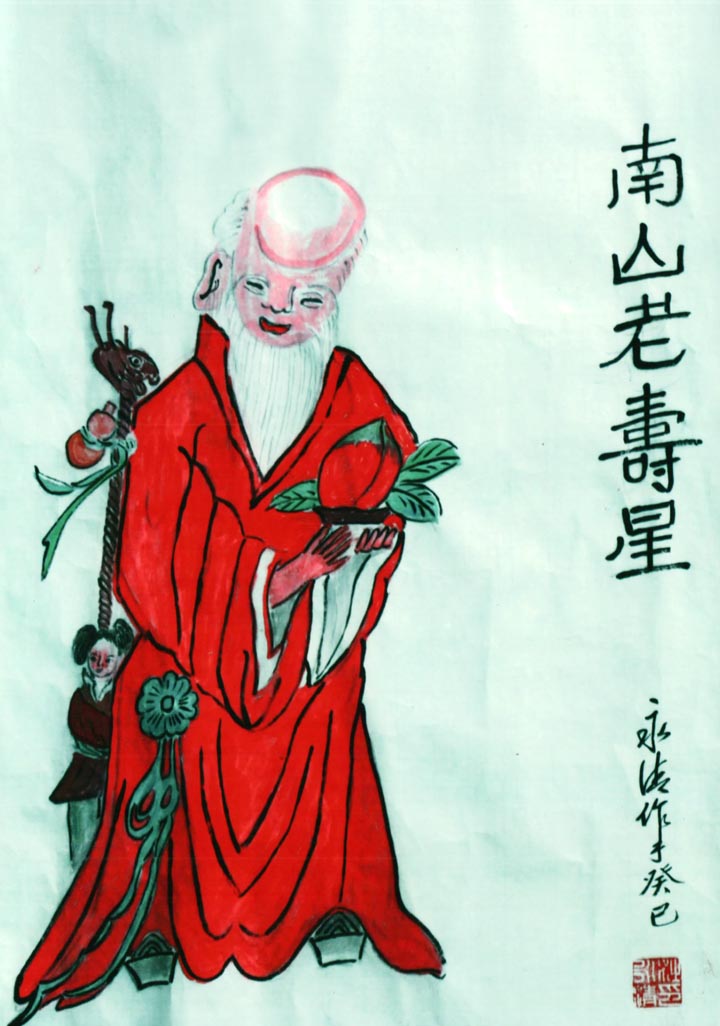 南山老壽星
永清作于癸巳